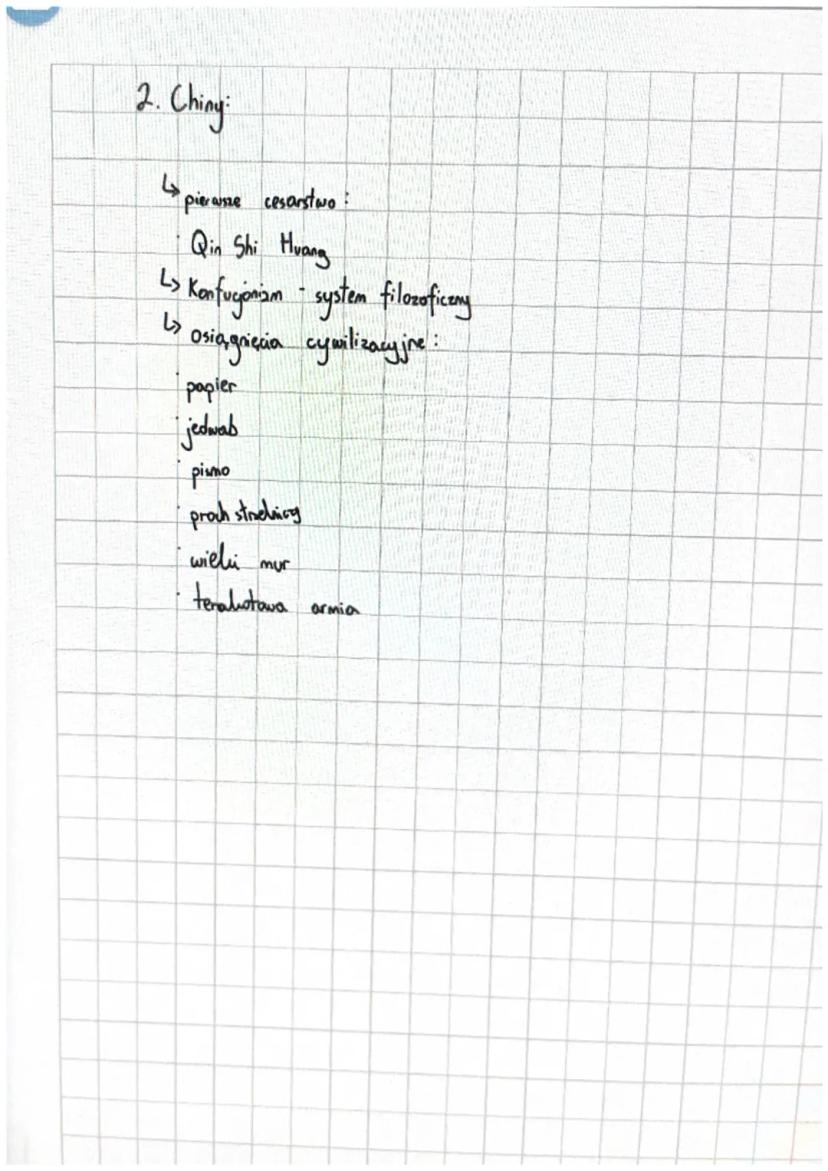 2. Chiny:
↳ pierwsze cesarstwo:
· Qin Shi Huang
↳ Konfucjonizm - system filozoficzny
↳ osiągnięcia cywilizacyjne:
· papier
· jedwab
· pismo
· proch strzelniczy
· wielki mur
· terakotowa armia